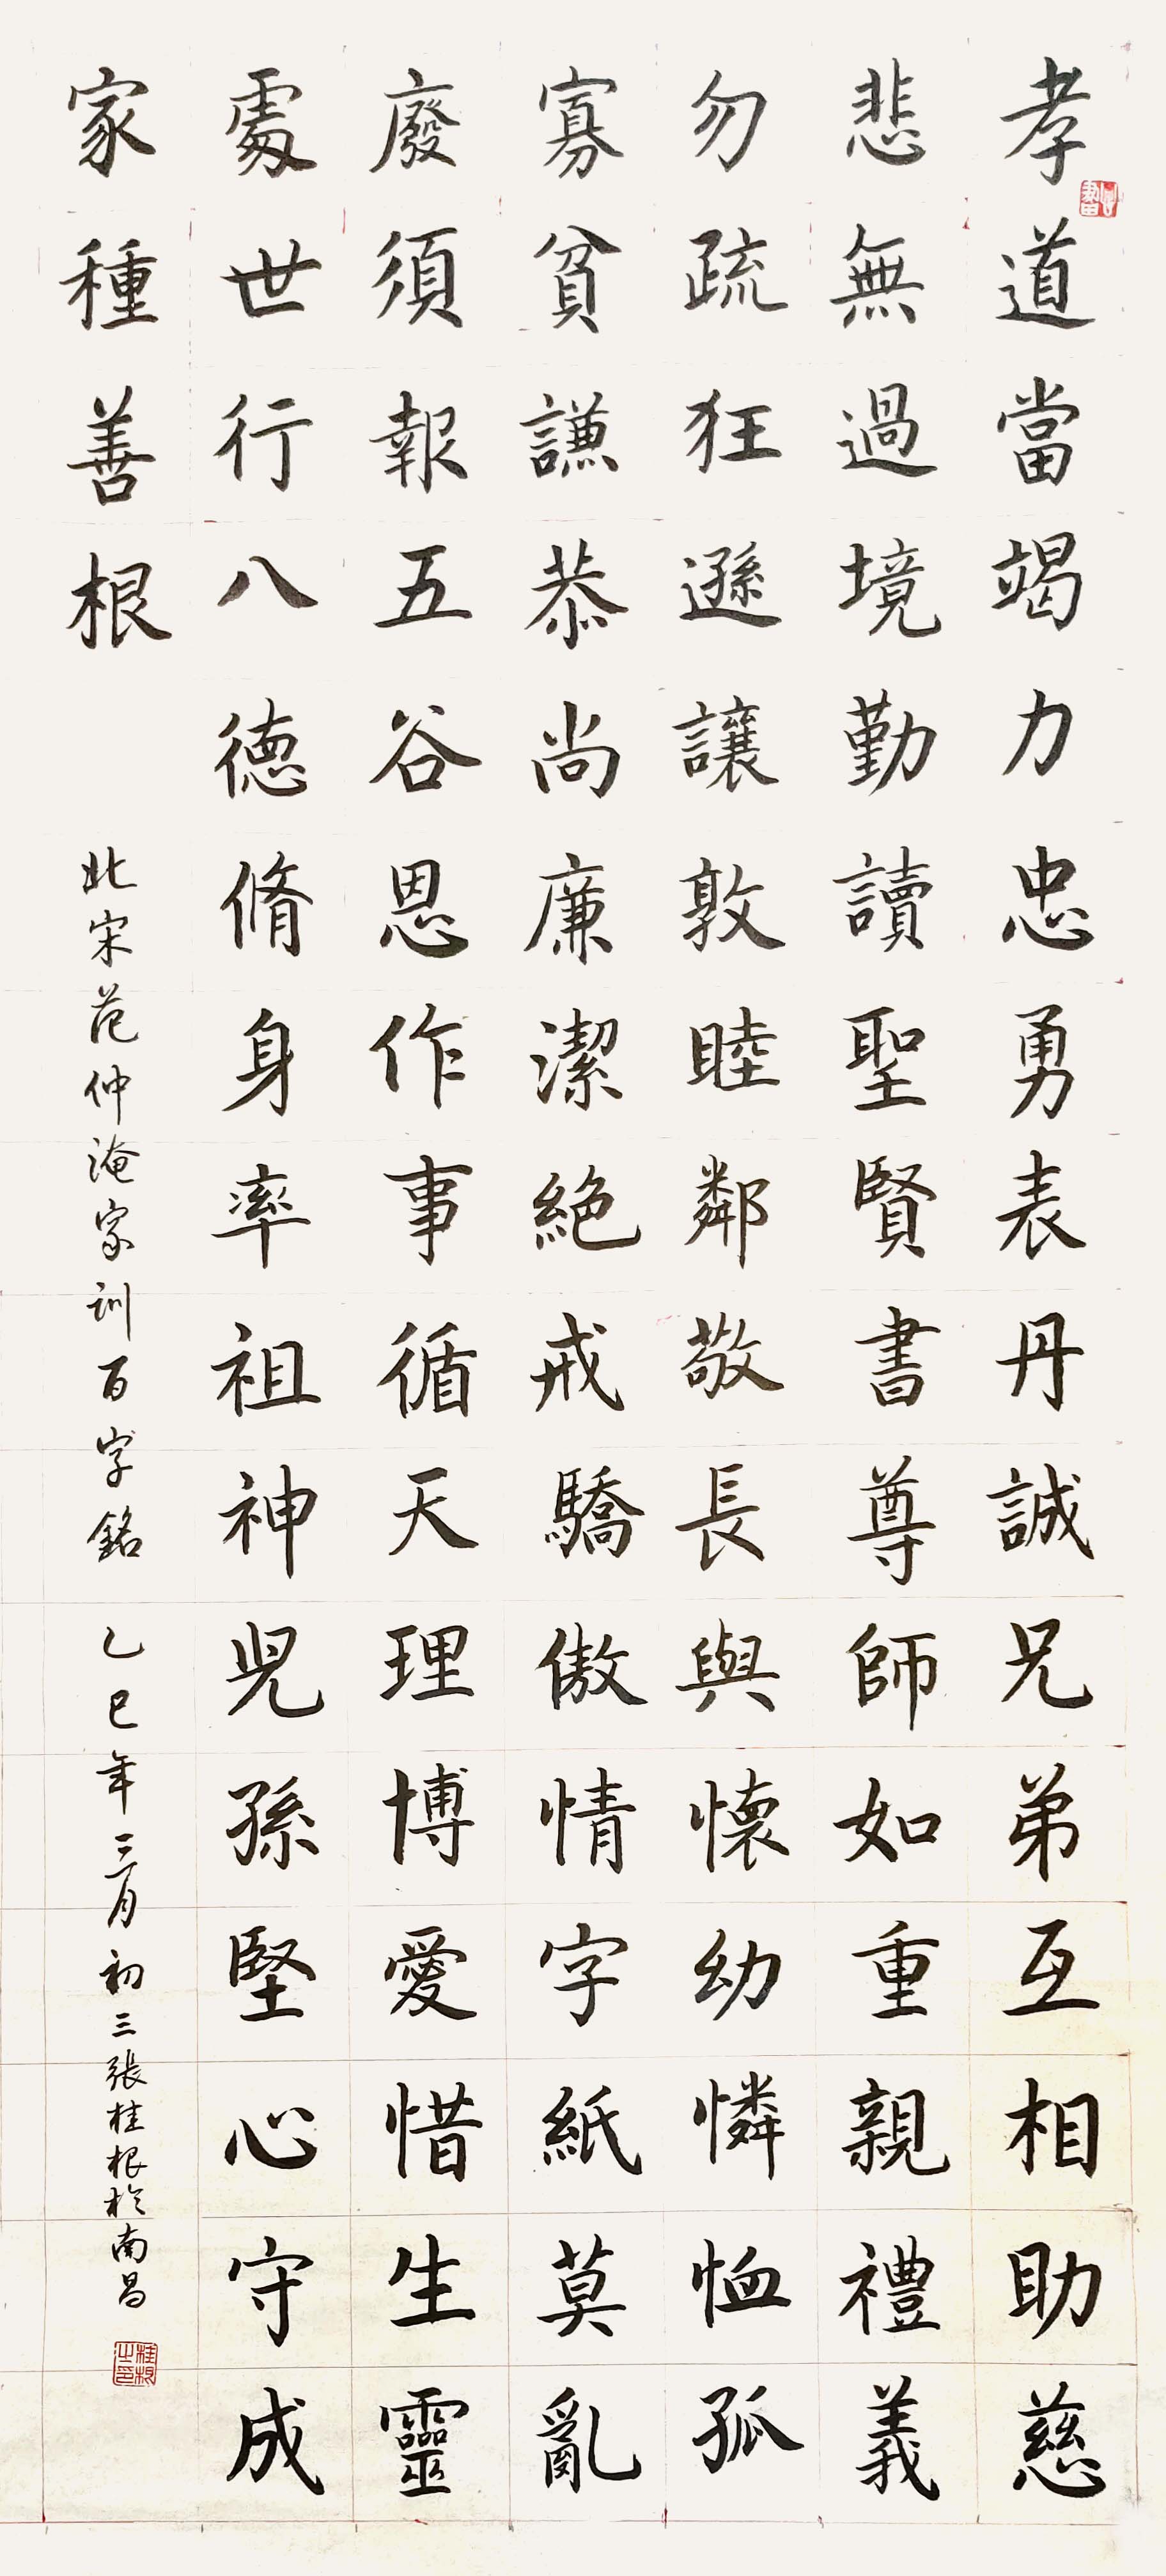 孝道當竭力忠勇表丹誠兄弟互相助慈
悲無過境勤讀聖賢書尊師如重親禮義
勿疏狂遜讓敦睦鄰敬長與懷幼憐恤孤
寡貧謙恭尚廉潔絕戒驕傲情字紙莫亂
廢須報五谷恩作事循天理博愛惜生靈
處世行八德脩身率祖神児孫堅心守成
家種善根
北宋范仲淹家訓百字銘 乙巳年三月初三張桂根於南昌
桂根之印